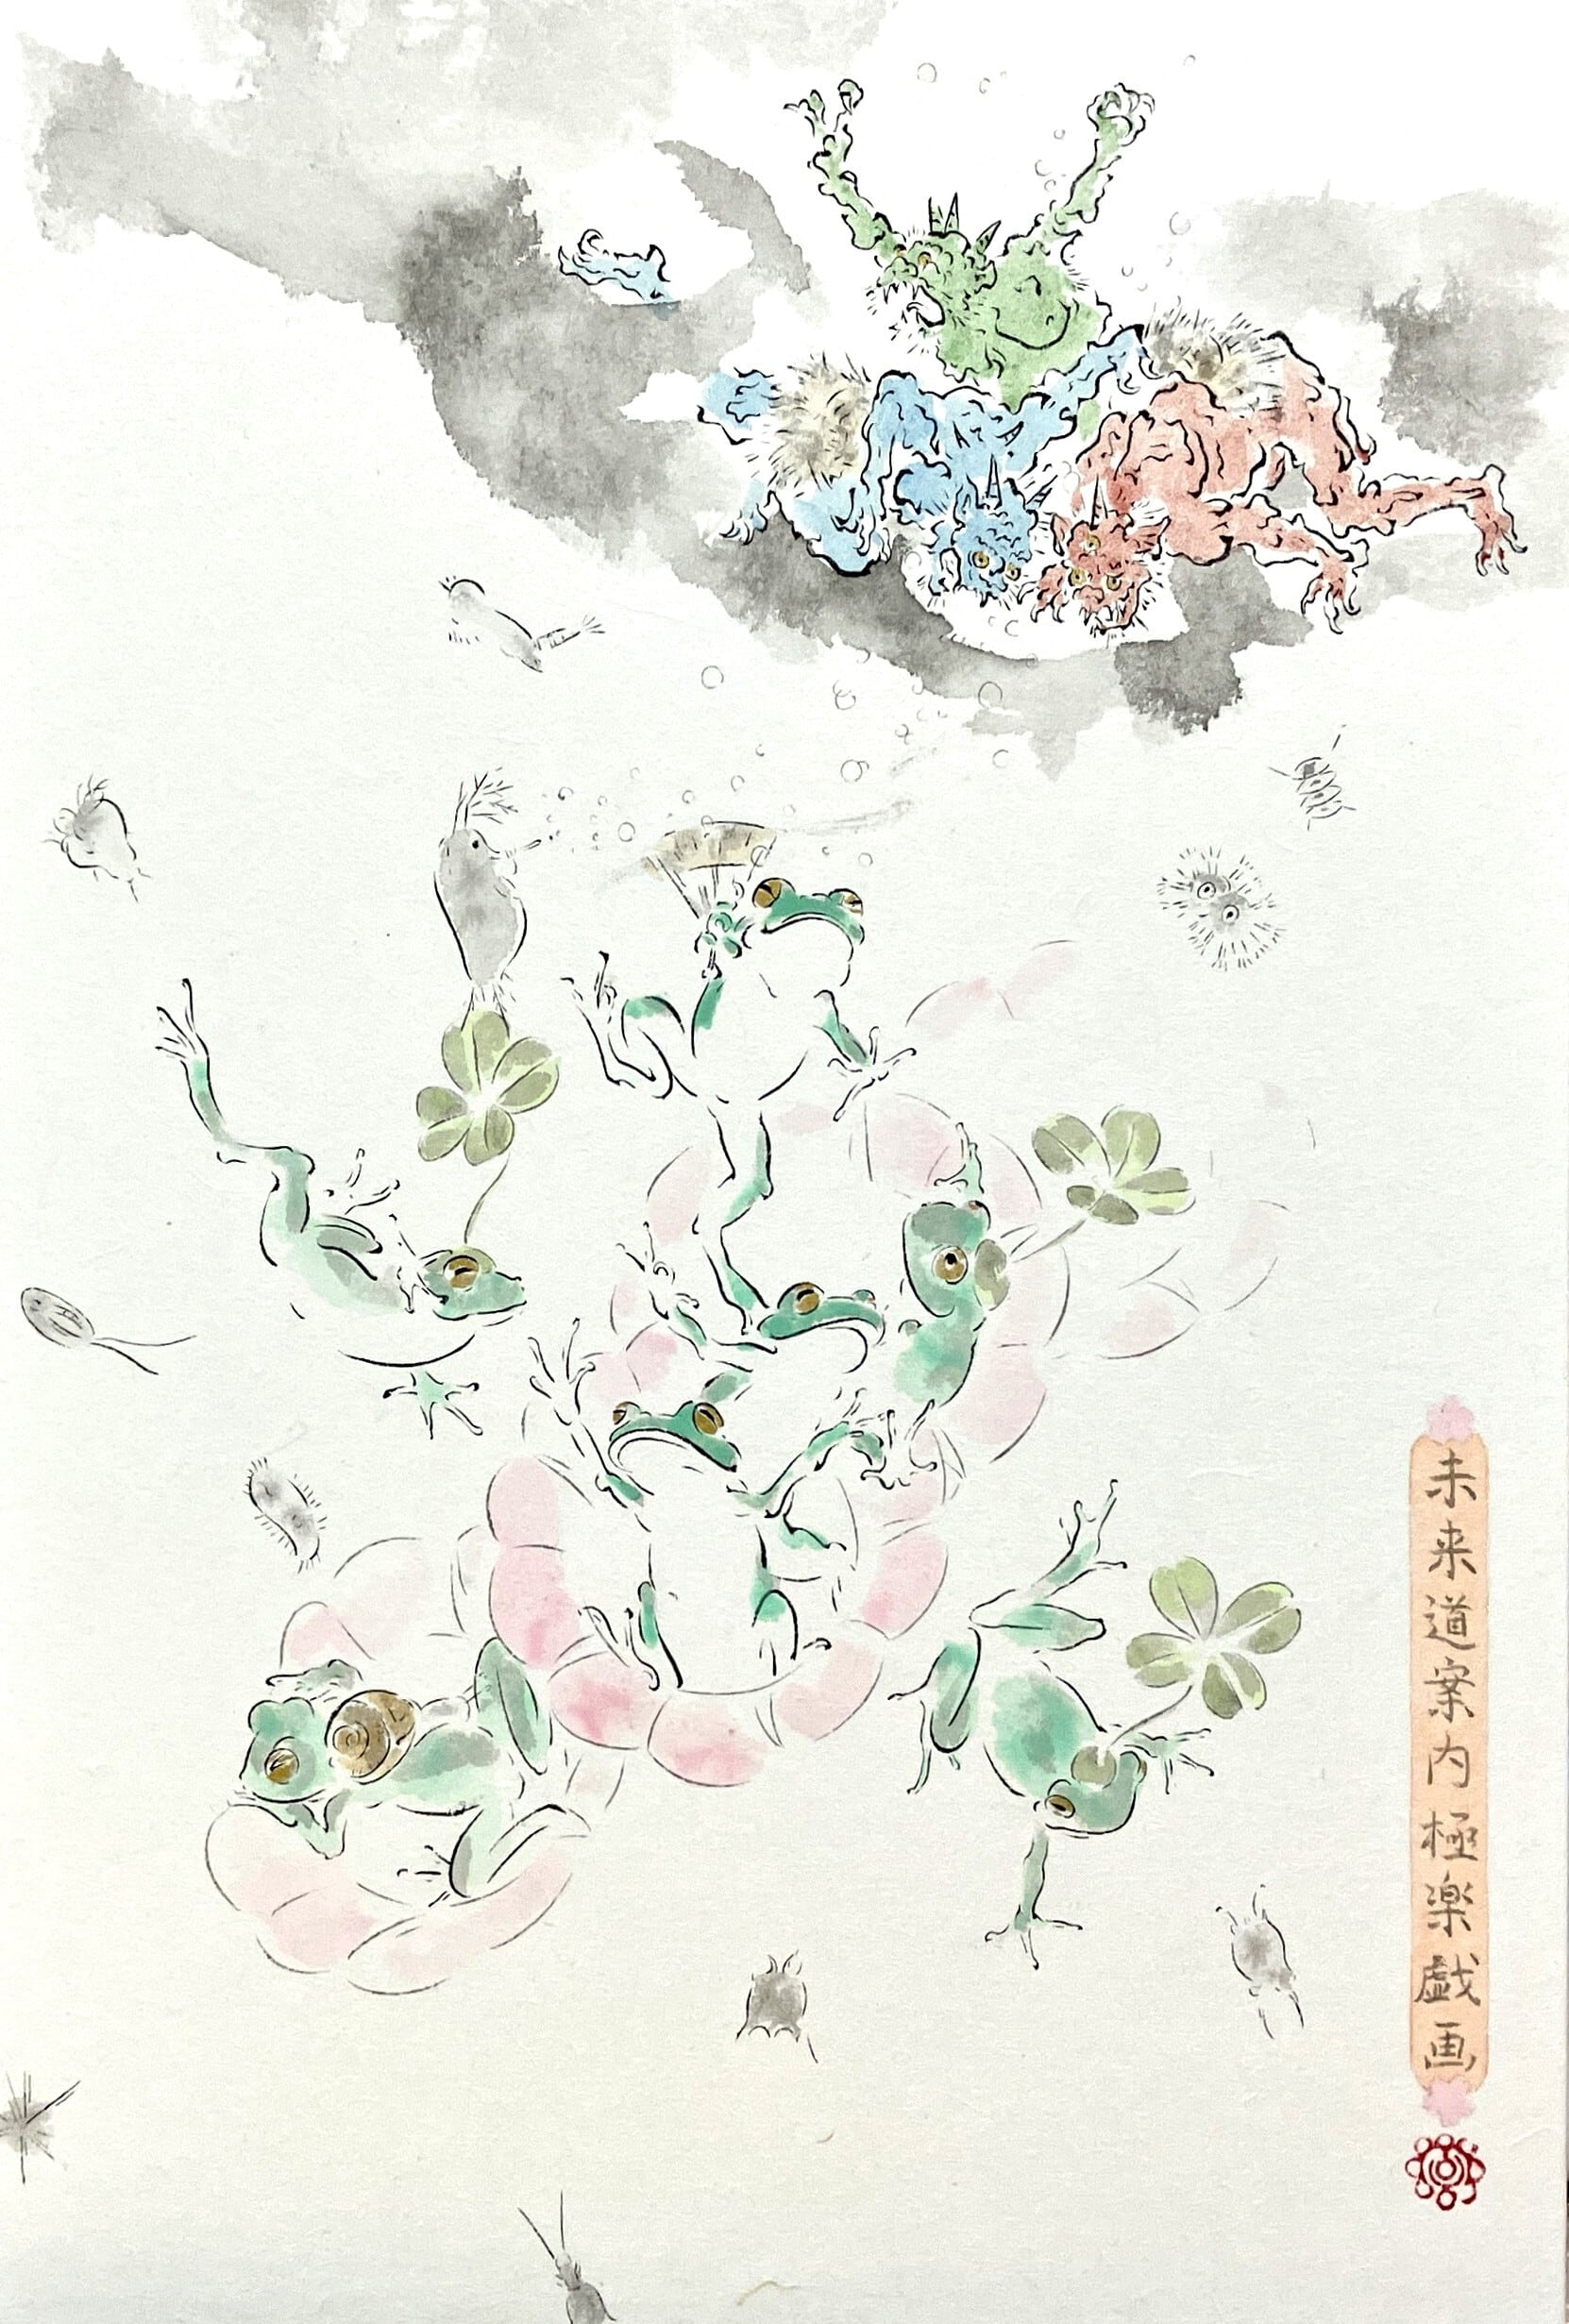 未来道案内極楽戯画